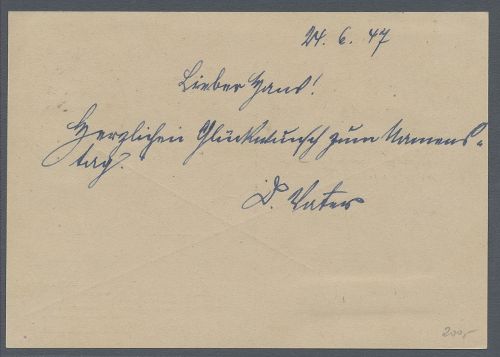 24. 6. 47
Lieber Hans!
Herzlichen Glückwunsch zum Namens-
tag.
D. Vater
200,-